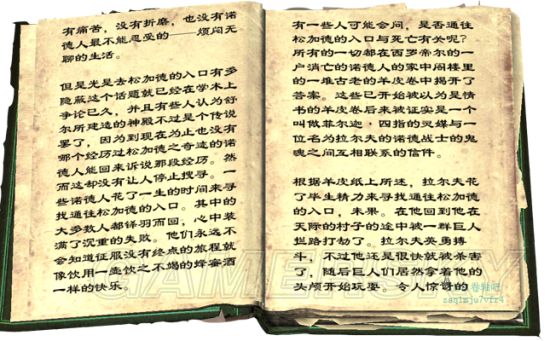 有痛苦，没有折磨，也没有诺
德人最不能忍受的——烦闷无
聊的生活。
但是光是去松加德的入口有多
隐蔽这个话题就已经在学术上
争论已久，并且有些人认为舒
尔所建造的神殿不过是个传说
罢了，因为到现在为止也没有
哪个经历过松加德之奇迹的诺
德人能回来诉说那段经历。然
而这却没有让人停止搜寻。一
些诺德人花了一生的时间来寻
找通往松加德的入口。其中的
大多数人都铩羽而回，心中装
满了沉重的失败。他们永远不
会知道征服没有终点的旅程就
像饮用一壶饮之不竭的蜂蜜酒
一样的快乐。
有一些人可能会问，是否通往
松加德的入口与死亡有关呢？
所有的一切都在西罗帝尔的一
户消亡的诺德人的家中阁楼里
的一堆古老的羊皮卷中揭开了
答案。这些已开始被以为是情
书的羊皮卷后来被证实是一个
叫做菲尔迦·四指的灵媒与一
位名为拉尔夫的诺德战士的鬼
魂之间互相联系的信件。
根据羊皮纸上所述，拉尔夫花
了毕生精力来寻找通往松加德
的入口，未果。在他回到他在
天际的村子的途中被一群巨人
拦路打劫了。拉尔夫英勇搏
斗，不过他还是很快就被杀害
了，随后巨人们居然拿着他的
头颅开始玩耍。令人惊奇的
GAMERSKY
卷轴吧
zaq1mju7vfr4